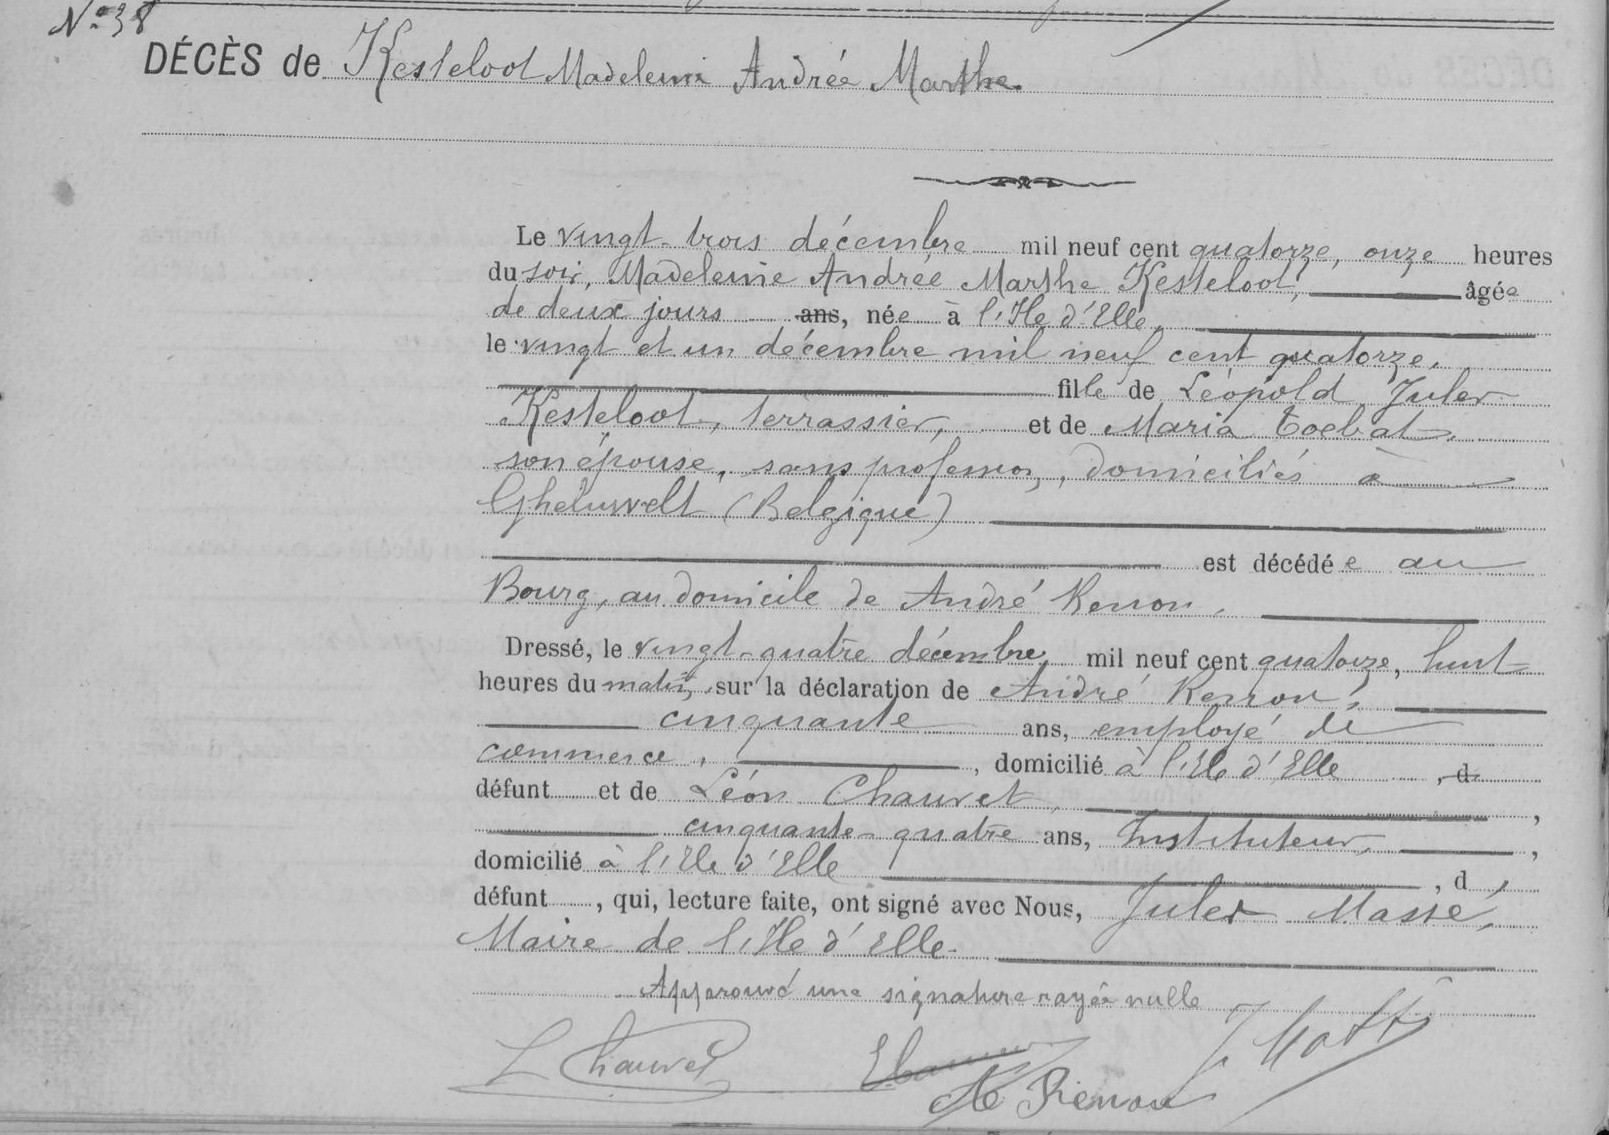 N° 38
DÉCÈS de Kesteloot Madeleine Andrée Marthe.
Le vingt-trois décembre mil neuf cent quatorze, onze heures
du soir, Madeleine Andrée Marthe Kesteloot, âgée
de deux jours ans, née à l'Ile d'Elle,
le vingt et un décembre mil neuf cent quatorze,
fille de Léopold Jules
Kesteloot, terrassier, et de Maria Toebat,
son épouse, sans profession, domiciliés à
Gheluwelt (Belgique)
est décédée au
Bourg, au domicile de André Renou,
Dressé, le vingt-quatre décembre mil neuf cent quatorze, huit
heures du matin, sur la déclaration de André Renou,
cinquante ans, employé de
commerce, , domicilié à l'Ile d'Elle , d
défunt et de Léon Chauvet, ,
cinquante-quatre ans, Instituteur, ,
domicilié à l'Ile d'Elle , d
défunt , qui, lecture faite, ont signé avec Nous, Jules Massé,
Maire de l'Ile d'Elle.
Approuvé une signature rayée nulle
L Chauvet J Massé
Renou